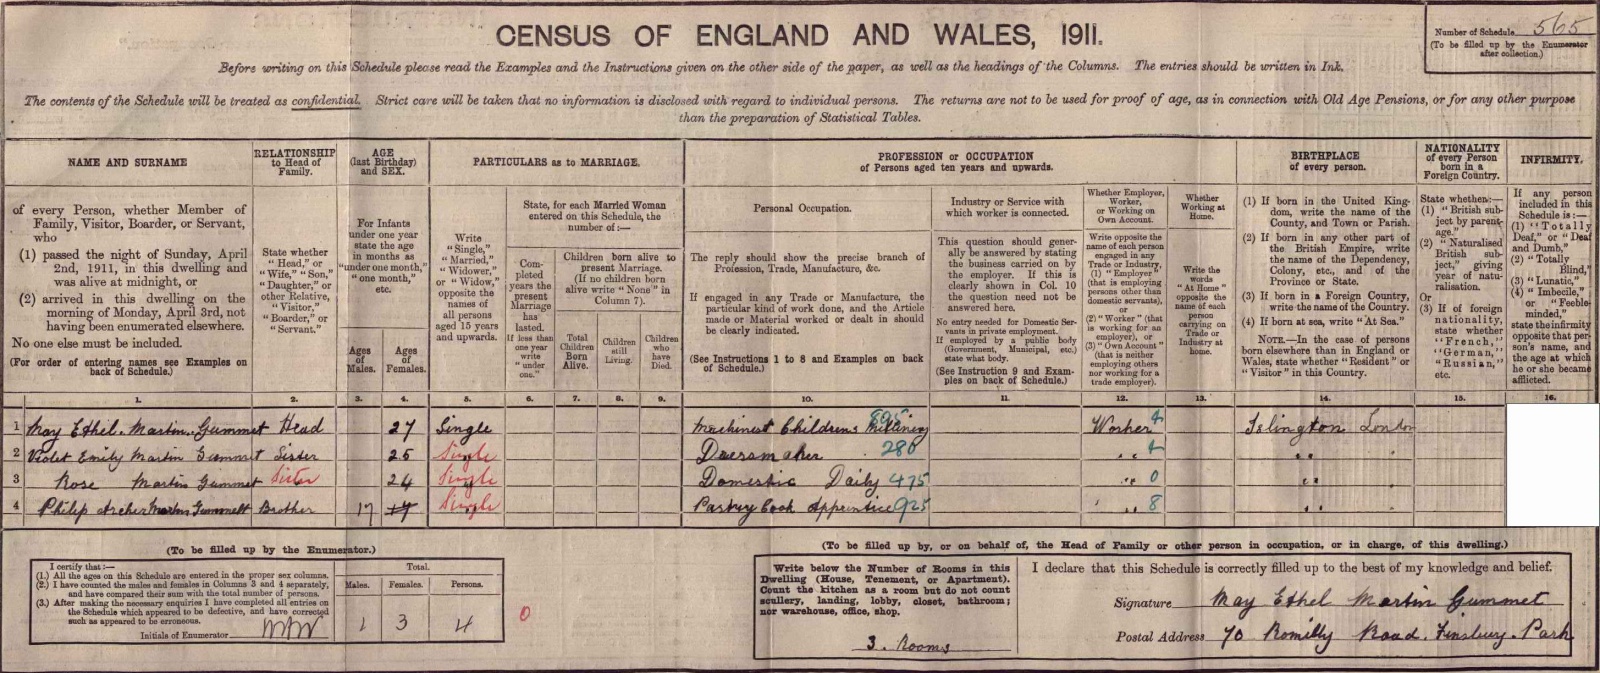 CENSUS OF ENGLAND AND WALES, 1911.
Number of Schedule 565
(To be filled up by the Enumerator
after collection.)
Before writing on this Schedule please read the Examples and the Instructions given on the other side of the paper, as well as the headings of the Columns. The entries should be written in Ink.
The contents of the Schedule will be treated as confidential. Strict care will be taken that no information is disclosed with regard to individual persons. The returns are not to be used for proof of age, as in connection with Old Age Pensions, or for any other purpose
than the preparation of Statistical Tables.
NAME AND SURNAME
of every Person, whether Member of
Family, Visitor, Boarder, or Servant,
who
(1) passed the night of Sunday, April
2nd, 1911, in this dwelling and
was alive at midnight, or
(2) arrived in this dwelling on the
morning of Monday, April 3rd, not
having been enumerated elsewhere.
No one else must be included.
(For order of entering names see Examples on
back of Schedule.)
RELATIONSHIP
to Head of
Family.
State whether
"Head," or
"Wife," "Son,"
"Daughter," or
other Relative,
"Visitor,"
"Boarder," or
"Servant."
AGE
(last Birthday)
and SEX.
For Infants
under one year
state the age
in months as
"under one month,"
"one month,"
etc.
Ages
of
Males.
Ages
of
Females.
PARTICULARS as to MARRIAGE.
Write
"Single,"
"Married,"
"Widower,"
or "Widow,"
opposite the
names of
all persons
aged 15 years
and upwards.
State, for each Married Woman
entered on this Schedule, the
number of:—
Com-
pleted
years the
present
Marriage
has
lasted.
If less than
one year
write
"under
one."
Children born alive to
present Marriage.
(If no children born
alive write "None" in
Column 7).
Total
Children
Born
Alive.
Children
still
Living.
Children
who
have
Died.
PROFESSION or OCCUPATION
of Persons aged ten years and upwards.
Personal Occupation.
The reply should show the precise branch of
Profession, Trade, Manufacture, &c.
If engaged in any Trade or Manufacture, the
particular kind of work done, and the Article
made or Material worked or dealt in should
be clearly indicated.
(See Instructions 1 to 8 and Examples on back
of Schedule.)
Industry or Service with
which worker is connected.
This question should gener-
ally be answered by stating
the business carried on by
the employer. If this is
clearly shown in Col. 10
the question need not be
answered here.
No entry needed for Domestic Ser-
vants in private employment.
If employed by a public body
(Government, Municipal, etc.)
state what body.
(See Instruction 9 and Exam-
ples on back of Schedule.)
Whether Employer,
Worker,
or Working on
Own Account.
Write opposite the
name of each person
engaged in any
Trade or Industry,
(1) "Employer"
(that is employing
persons other than
domestic servants),
or
(2) "Worker" (that
is working for an
employer), or
(3) "Own Account"
(that is neither
employing others
nor working for a
trade employer).
Whether
Working at
Home.
Write the
words
"At Home"
opposite the
name of each
person
carrying on
Trade or
Industry at
home.
BIRTHPLACE
of every person.
(1) If born in the United King-
dom, write the name of the
County, and Town or Parish.
(2) If born in any other part of
the British Empire, write
the name of the Dependency,
Colony, etc., and of the
Province or State.
(3) If born in a Foreign Country,
write the name of the Country.
(4) If born at sea, write "At Sea."
NOTE.—In the case of persons
born elsewhere than in England or
Wales, state whether "Resident" or
"Visitor" in this Country.
NATIONALITY
of every Person
born in a
Foreign Country.
State whether:—
(1) "British sub-
ject by parent-
age."
(2) "Naturalised
British sub-
ject," giving
year of natu-
ralisation.
Or
(3) If of foreign
nationality,
state whether
"French,"
"German,"
"Russian,"
etc.
INFIRMITY.
If any person
included in this
Schedule is:—
(1) "Totally
Deaf," or "Deaf
and Dumb,"
(2) "Totally
Blind,"
(3) "Lunatic,"
(4) "Imbecile,"
or "Feeble-
minded,"
state the infirmity
opposite that per-
son's name, and
the age at which
he or she became
afflicted.
1. 2. 3. 4. 5. 6. 7. 8. 9. 10. 11. 12. 13. 14. 15. 16.
1 May Ethel. Martin. Gummet Head 27 Single Machinist Childrens Millinery 895 Worker 4 Islington London
2 Violet Emily Martin Gummet Sister 25 Single Dressmaker 280 " 4 " "
3 Rose Martin Gummet Sister 24 Single Domestic Daily 475 " 0 " "
4 Philip Archer Martin Gummett Brother 17 17 Single Pastry Cook Apprentice 925 " 8 " "
(To be filled up by the Enumerator.)
I certify that:—
(1.) All the ages on this Schedule are entered in the proper sex columns.
(2.) I have counted the males and females in Columns 3 and 4 separately,
and have compared their sum with the total number of persons.
(3.) After making the necessary enquiries I have completed all entries on
the Schedule which appeared to be defective, and have corrected
such as appeared to be erroneous.
Initials of Enumerator
Total.
Males. Females. Persons.
1 3 4
0
(To be filled up by, or on behalf of, the Head of Family or other person in occupation, or in charge, of this dwelling.)
Write below the Number of Rooms in this
Dwelling (House, Tenement, or Apartment).
Count the kitchen as a room but do not count
scullery, landing, lobby, closet, bathroom;
nor warehouse, office, shop.
3. Rooms
I declare that this Schedule is correctly filled up to the best of my knowledge and belief.
Signature May Ethel Martin Gummet
Postal Address 70 Romilly Road. Finsbury. Park